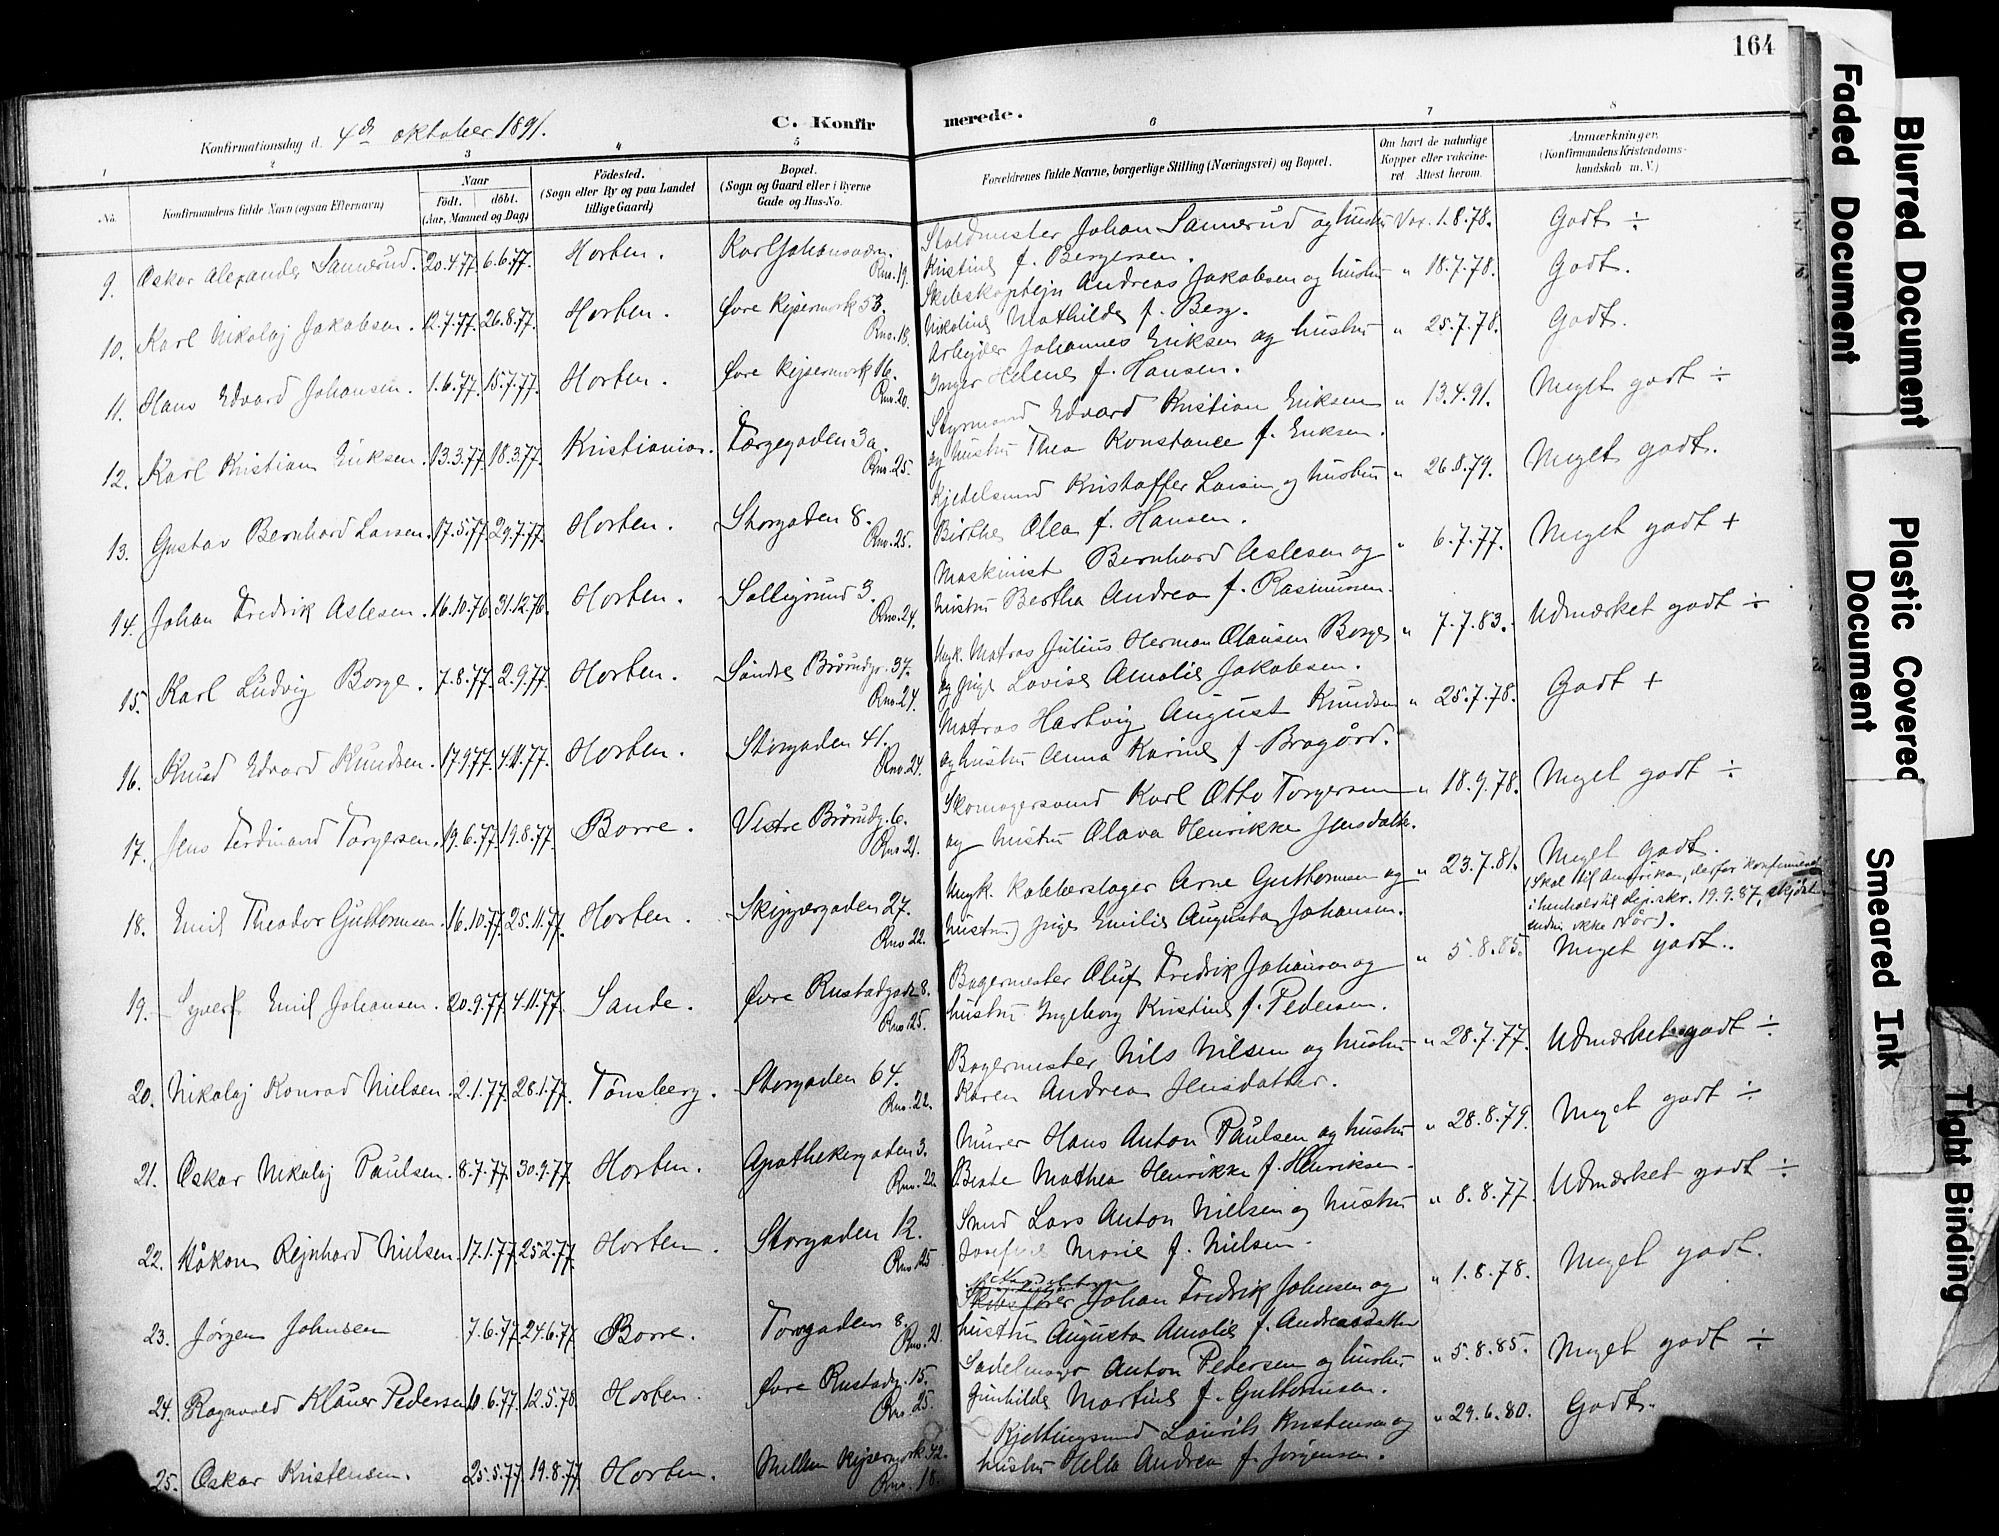 164
Konfirmationsdag d. 4de oktober 1891.
C. Konfirmerede.
1 2 3 4 5 6 7 8
No.
Konfirmandens fulde Navn (ogsaa Efternavn)
Naar
født. døbt.
(Aar, Maaned og Dag)
Fødested.
(Sogn eller By og paa Landet tillige Gaard)
Bopæl.
(Sogn og Gaard eller i Byerne Gade og Hus-No.
Forældrenes fulde Navne, borgerlige Stilling (Næringsvei) og Bopæl.
Om havt de naturlige Kopper eller vakcineret Attest herom.
Anmærkninger.
(Konfirmandens Kristendomskundskab m. V.)
9. Oskar Alexander Sannerud. 20.4.77. 6.6.77. Horten. Karl Johansværn. Rno. 19. Staldmester Johan Sannerud og hustru Kristine f. Bergersen. Vax. 1.8.78. Godt ÷
10. Karl Nikolaj Jakobsen. 12.7.77. 26.8.77. Horten. Øvre Kejsermark 53. Rno. 18. Skibskaptejn Andreas Jakobsen og hustru Nikoline Mathilde f. Berg. " 18.7.78. Godt.
11. Hans Edvard Johansen. 1.6.77. 15.7.77. Horten. Øvre Kejsermark 16. Rno. 20. Arbejder Johannes Eriksen og hustru Inger Helene f. Hansen. " 25.7.78. Godt.
12. Karl Kristian Eriksen. 13.3.77. 18.3.77. Kristiania. Færgegaden 3a. Rno. 25. Styrmand Edvard Kristian Eriksen og hustru Thea Konstance f. Eriksen. " 13.4.91. Meget godt ÷
13. Gustav Bernhard Larsen. 17.5.77. 29.7.77. Horten. Storgaden 8. Rno. 25. Kjedelsmed Kristoffer Larsen og hustru Birthe Olea f. Hansen. " 26.8.79. Meget godt.
14. Johan Fredrik Aslesen. 16.10.76. 31.12.76. Horten. Solligrund 3. Rno. 24. Maskinist Bernhard Aslesen og hustru Bertha Andrea f. Rasmussen. " 6.7.77. Meget godt +
15. Karl Ludvig Borge. 7.8.77. 2.9.77. Horten. Søndre Brårudgr. 37. Rno. 24. Ungk. Matros Julius Herman Olausen Borge og pige Lovise Amalie Jakobsen. " 7.7.83. Udmærket godt ÷
16. Knud Edvard Knudsen. 17.9.77. 4.11.77. Horten. Storgaden 41. Rno. 24. Matros Hartvig August Knudsen og hustru Anna Karine f. Bragård. " 25.7.78. Godt +
17. Jens Ferdinand Torgersen. 19.6.77. 19.8.77. Borre. Vestre Brårudg. 6. Rno. 21. Skomagersvend Karl Otto Torgersen og hustru Olava Henrikke Jensdatter. " 18.9.78. Meget godt ÷
18. Emil Theodor Guttormsen. 16.10.77. 25.11.77. Horten. Skippergaden 27. Rno 22. Ungk. Kobberslager Arne Guttormsen og hustru) pige Emilie Augusta Johansen. " 23.7.81. Meget godt. (Skal til Amerika, derfor konfirmeret i henhold til dep. skr. 19.9.87, skjønt endnu ikke 14 år).
19. Syver Emil Johansen. 20.9.77. 4.11.77. Sande. Øvre Rustadgade 8. Rno. 25. Bagermester Oluf Fredrik Johansen og hustru Ingeborg Kristine f. Pedersen. " 5.8.85. Meget godt.
20. Nikolaj Konrad Nielsen. 2.1.77. 28.1.77. Tønsberg. Storgaden 64. Rno. 22. Bagermester Nils Nilsen og hustru Karen Andrea Jensdatter. " 28.7.77. Udmærket godt ÷
21. Oskar Nikolaj Paulsen. 8.7.77. 30.9.77. Horten. Apothekergaden 3. Rno. 22. Murer Hans Anton Paulsen og hustru Beate Mathea Henrikke f. Henriksen. " 28.8.79. Meget godt ÷
22. Håkon Rejnhard Nielsen. 17.1.77. 25.2.77. Horten. Storgaden 12. Rno 25 Smed Lars Anton Nielsen og hustru Josefine Marie f. Nielsen. " 8.8.77. Udmærket godt ÷
23. Jørgen Johnsen 7.6.77. 24.6.77. Borre. Torvgaden 8. Rno. 21. Skibsfører Johan Fredrik Johnsen og hustru Augusta Amalie f. Andreasdatter " 1.8.78. Meget godt.
24. Ragnvald Klaver Pedersen 10.6.77. 12.5.78. Horten. Øvre Rustadg. 15. Rno. 25. Sadelmager Anton Pedersen og hustru Gunhilde Martine f. Guttormsen. " 5.8.85. Meget godt ÷
25. Oskar Kristensen. 25.5.77. 19.8.77. Horten. Mellem Kejsermark 42. Rno. 18. Kjettingsmed Laurits Kristensen og hustru Helle Andrea f. Jørgensen. " 29.6.80. Godt.
Faded Document
Blurred Document
Plastic Covered Document
Smeared Ink
Tight Binding